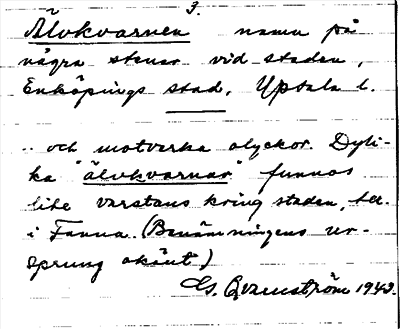 3.
Älvkvarnen namn på
några stenar vid staden,
Enköpings stad, Uppsala l.
.. och motverka olyckor. Dyli-
ka "älvkvarnar" funnos
lite varstans kring staden, t.ex.
i Fanna. (Benämningens ur-
sprung okänt)
G. Ezenström 1943.